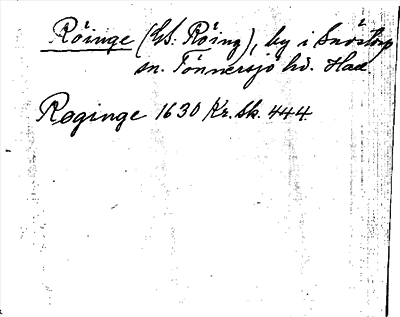 Röinge (GS: Röing), by i Snöstorp
sn. Tönnersjö hd. Hall.
Røginge 1630 Kr. Sk. 444